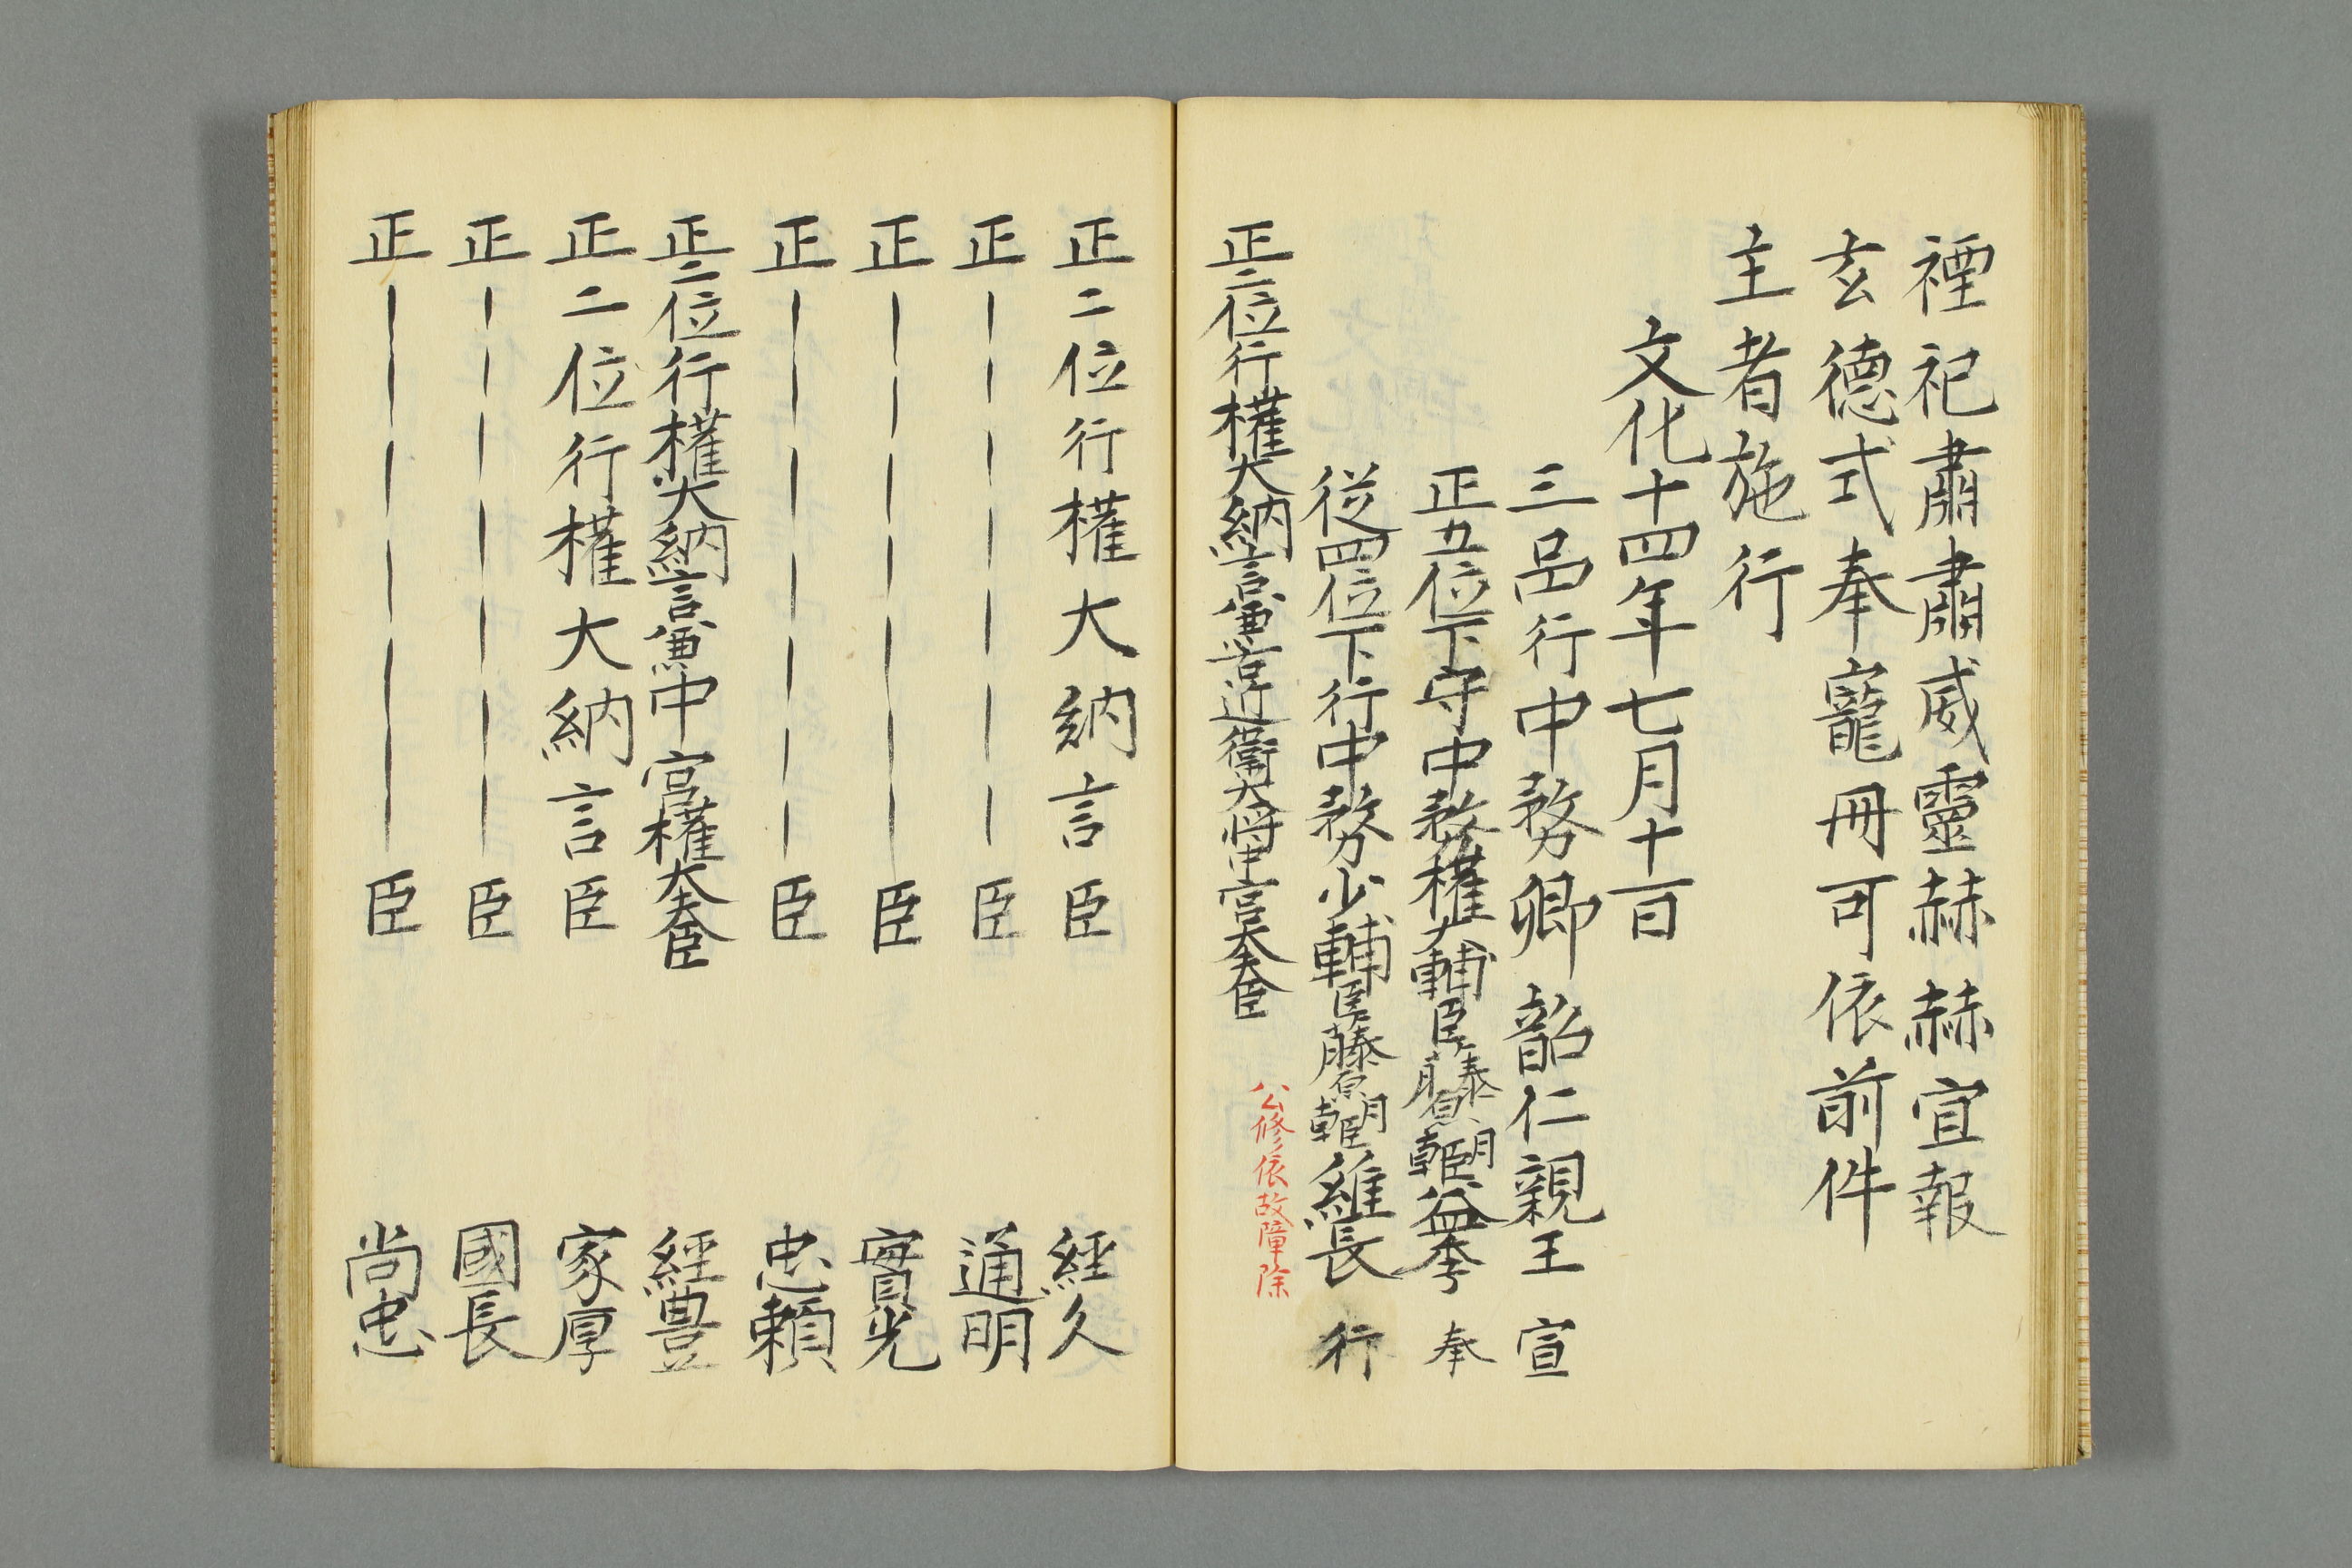 禋祀肅肅威靈赫赫宣報
玄德式奉寵冊可依前件
主者施行
文化十四年七月十一日
三品行中務卿韶仁親王宣
正五位下守中務權大輔臣藤原朝臣益季奉
從四位下行中務少輔臣藤原朝臣維長行
正二位行權大納言兼右近衛大將中宮大夫臣
公修依故障除
正二位行權大納言臣 經久
正――――――臣 通明
正――――――臣 實光
正――――――臣 忠頼
正二位行權大納言兼中宮權大夫臣 經豊
正二位行權大納言臣 家厚
正――――――臣 國長
正――――――臣 尚忠